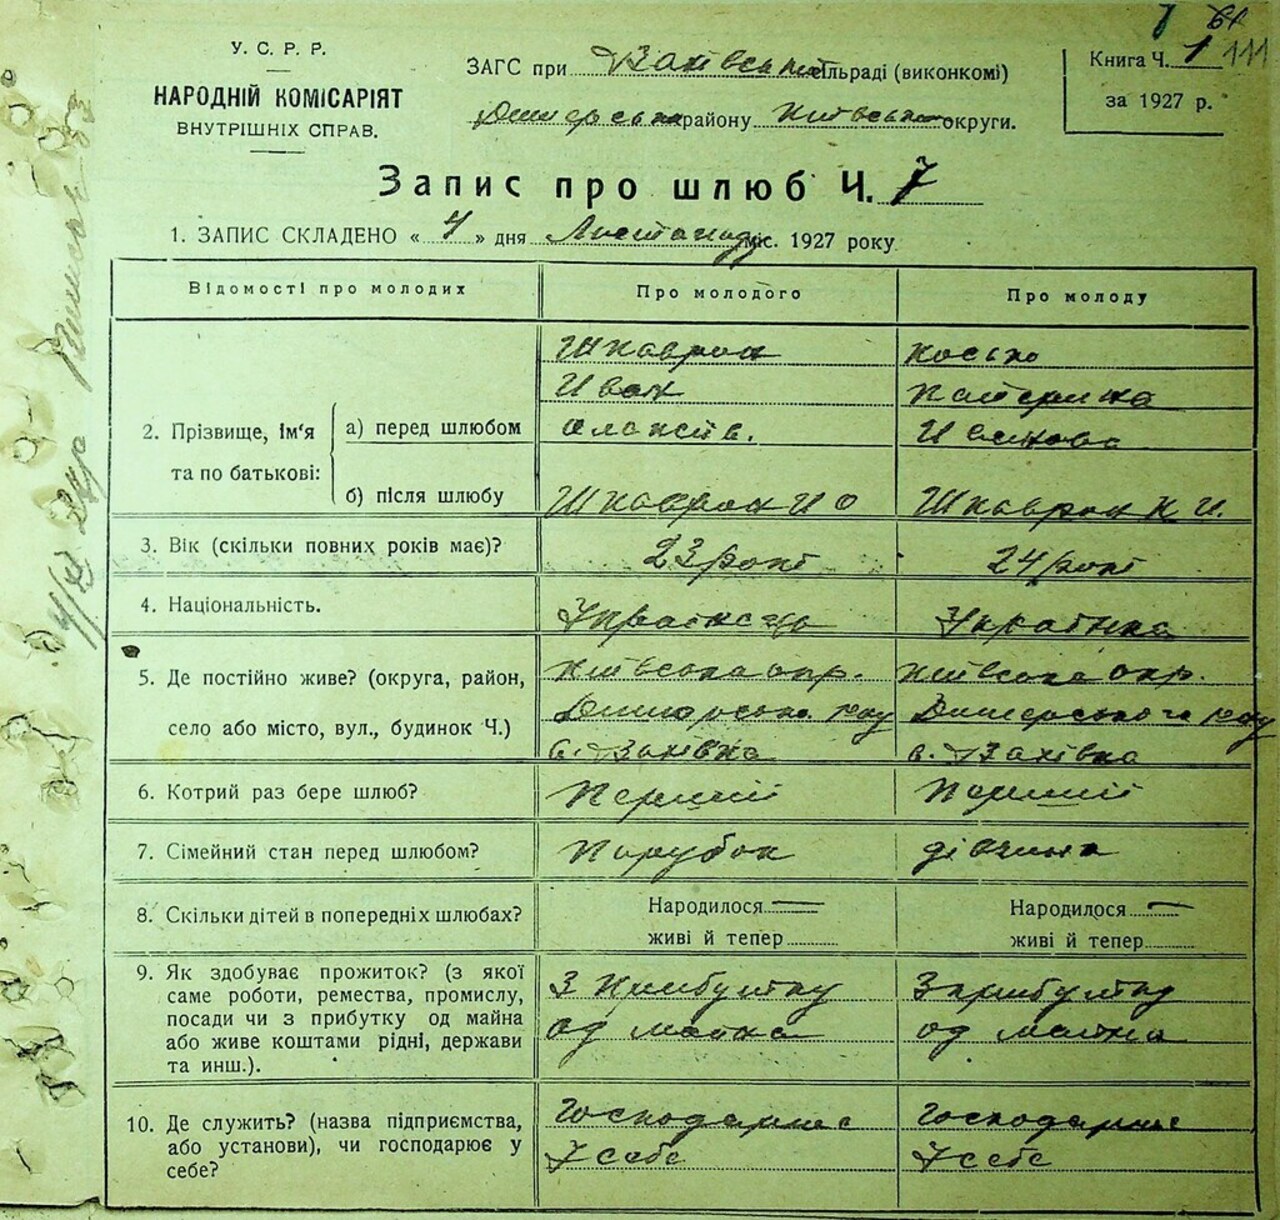 У. С. Р. Р.
НАРОДНІЙ КОМІСАРІЯТ
ВНУТРІШНІХ СПРАВ.
ЗАГС при сільраді (виконкомі)
району Київської округи.
Книга Ч. 1 111
за 1927 р.
Запис про шлюб Ч. 7
1. ЗАПИС СКЛАДЕНО « 4 » дня Листопаду міс. 1927 року
Відомості про молодих Про молодого Про молоду
2. Прізвище, ім'я та по батькові:
а) перед шлюбом
Шкаврон
Иван
Косько
Катерина
Иванова
б) після шлюбу
Шкаврон И О
Шкаврон К И.
3. Вік (скільки повних років має)? 23 роки 24 роки
4. Національність. Українець Українка
5. Де постійно живе? (округа, район,
село або місто, вул., будинок Ч.)
Київська окр.
с.
Київська окр.
Димерського р-ну
с.
6. Котрий раз бере шлюб? Перший Перший
7. Сімейний стан перед шлюбом? Парубок дівчина
8. Скільки дітей в попередніх шлюбах? Народилося — Народилося —
живі й тепер живі й тепер
9. Як здобуває прожиток? (з якої
саме роботи, ремества, промислу,
посади чи з прибутку од майна
або живе коштами рідні, держави
та инш.).
З прибутку
од майна
З прибутку
од майна
10. Де служить? (назва підприємства,
або установи), чи господарює у
себе?
Господарює
У себе
Господарює
У себе